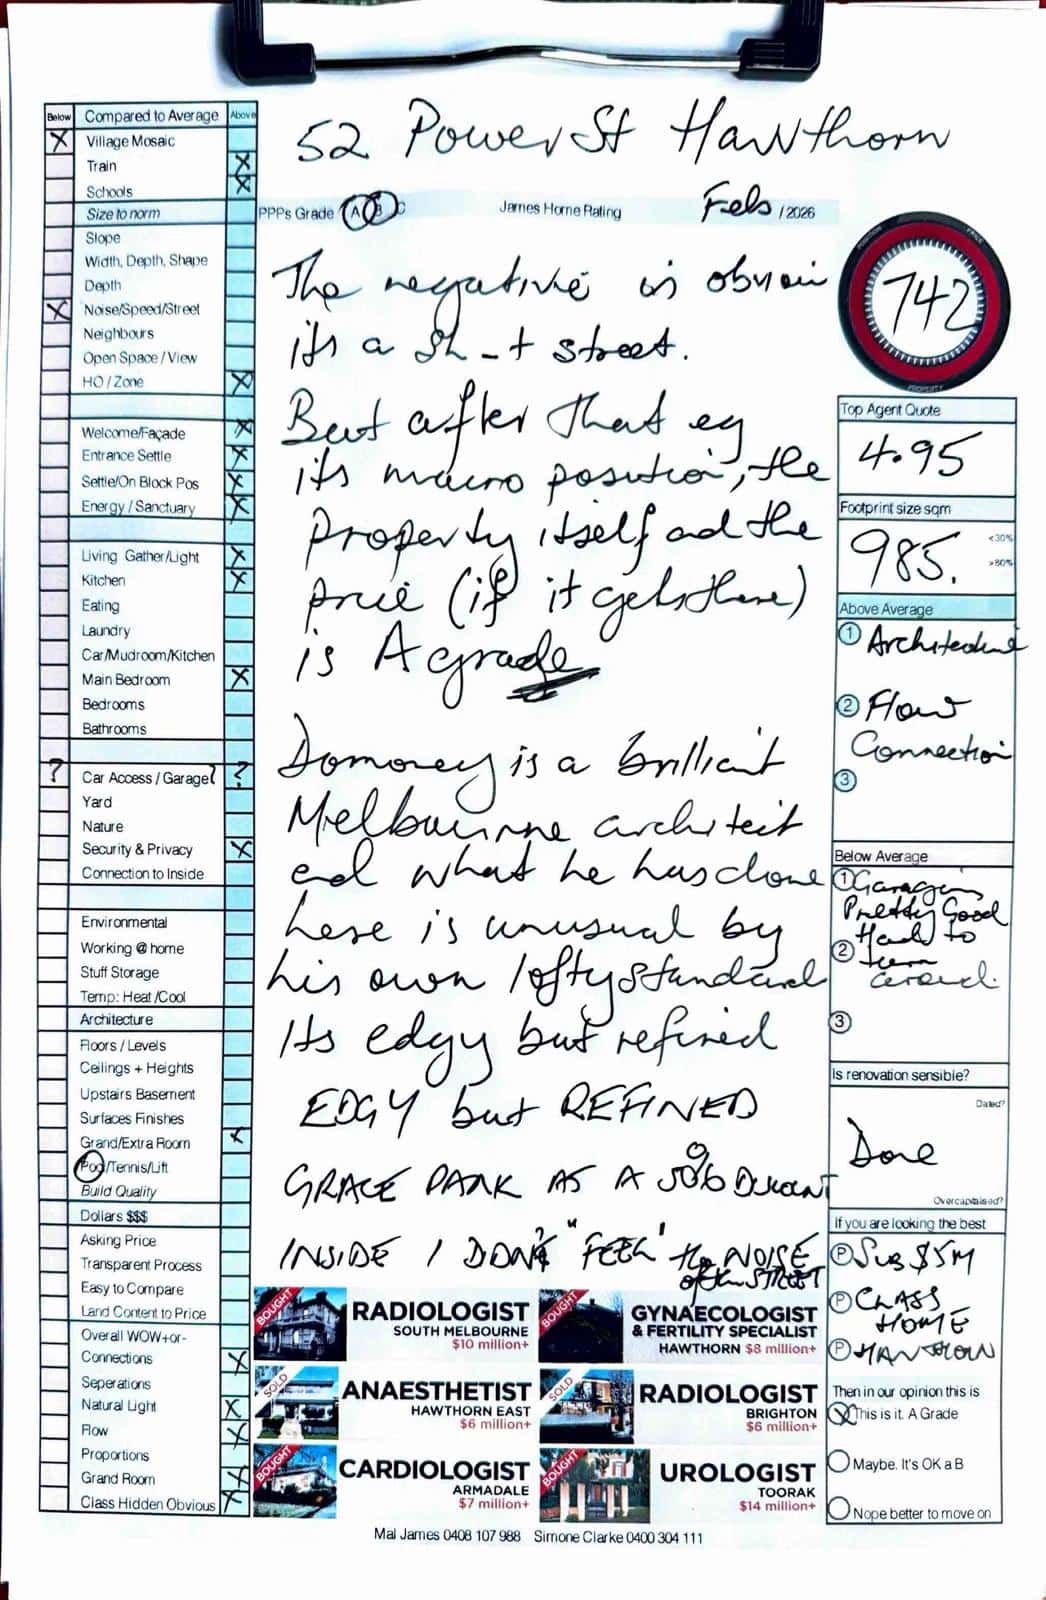 52 Power St Hawthorn
Below Compared to Average Above
X Village Mosaic
Train X
Schools X
Size to norm
Slope
Width, Depth, Shape
Depth
X Noise/Speed/Street
Neighbours
Open Space / View
HO / Zone X
Welcome/Façade X
Entrance Settle X
Settle/On Block Pos X
Energy / Sanctuary X
Living Gather/Light X
Kitchen X
Eating
Laundry
Car/Mudroom/Kitchen
Main Bedroom X
Bedrooms
Bathrooms
? Car Access / Garage? ?
Yard
Nature
Security & Privacy X
Connection to Inside
Environmental
Working @ home
Stuff Storage
Temp: Heat /Cool
Architecture
Floors / Levels
Ceilings + Heights
Upstairs Basement
Surfaces Finishes
Grand/Extra Room X
Pool/Tennis/Lift
Build Quality
Dollars $$$
Asking Price
Transparent Process
Easy to Compare
Land Content to Price
Overall WOW+or-
Connections X
Seperations
Natural Light X
Flow X
Proportions
Grand Room X
Class Hidden Obvious X
PPPs Grade A B C James Home Rating Feb / 2026
The negative is obvious
its a Sh-t street.
But after that eg
its macro position, the
property itself and the
price (if it gets there)
is A grade
Domoney is a brilliant
Melbourne architect
and what he has done
here is unusual by
his own lofty standard
Its edgy but refined
EDGY but REFINED
GRACE PARK AT A 50% DISCOUNT
INSIDE I DON'T "FEEL" the NOISE
of the STREET
POSITION PRICE
742
PROPERTY
Top Agent Quote
4.95
Footprint size sqm
985.
<30%
>80%
Above Average
1 Architecture
2 Flow
Connection
3
Below Average
1 Garaging
Pretty Good
2 Hard to
turn
around.
3
Is renovation sensible?
Dated?
Done
Overcapitalised?
If you are looking the best
P Sub $5M
P CLASS
HOME
P HAWTHORN
Then in our opinion this is
X This is it. A Grade
Maybe. It's OK a B
Nope better to move on
BOUGHT
RADIOLOGIST
SOUTH MELBOURNE
$10 million+
BOUGHT
GYNAECOLOGIST
& FERTILITY SPECIALIST
HAWTHORN $8 million+
SOLD
ANAESTHETIST
HAWTHORN EAST
$6 million+
SOLD
RADIOLOGIST
BRIGHTON
$6 million+
BOUGHT
CARDIOLOGIST
ARMADALE
$7 million+
BOUGHT
UROLOGIST
TOORAK
$14 million+
Mal James 0408 107 988 Simone Clarke 0400 304 111